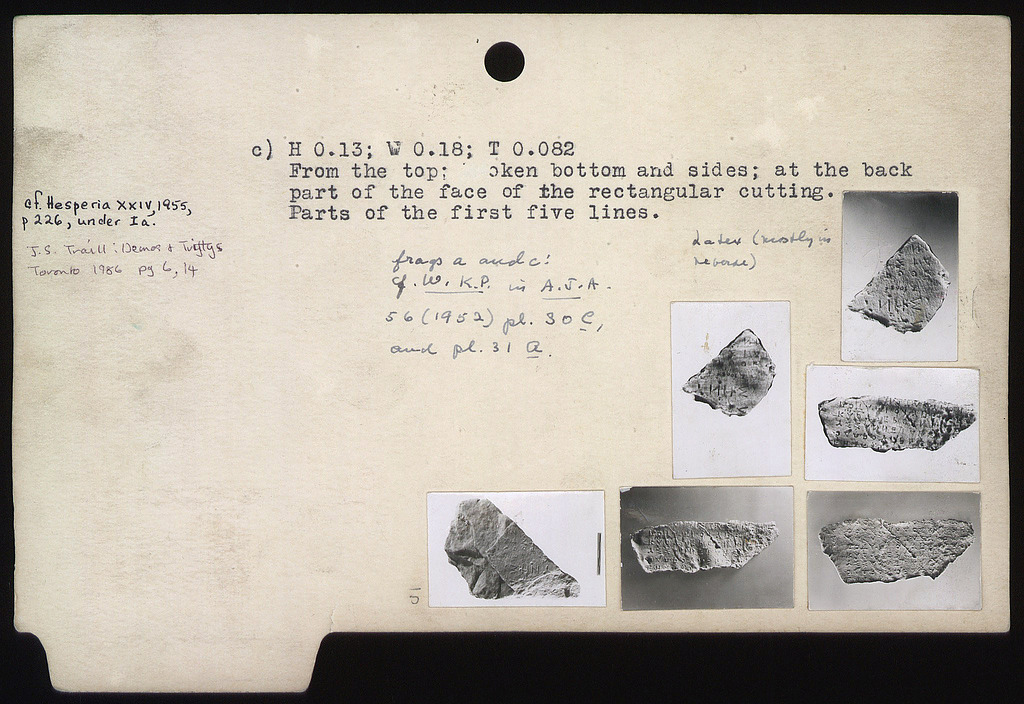 c) H 0.13; W 0.18; T 0.082
From the top; oken bottom and sides; at the back
part of the face of the rectangular cutting.
Parts of the first five lines.
cf. Hesperia XXIV, 1955,
p 226, under Ia.
J.S. Traill: Demos &
Toronto 1986 pg 6, 14
frags a and c:
cf. W.K.P. in A.J.A.
56 (1952) pl. 30 C,
and pl. 31 a.
Latex (mostly in
reverse)